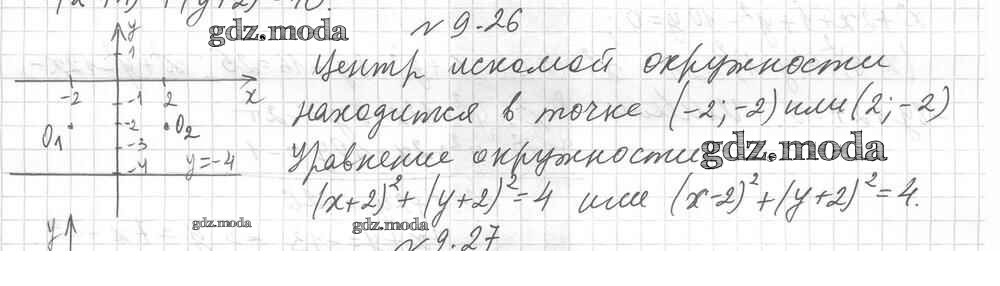 gdz.moda
№ 9.26
Центр искомой окружности
находится в точке (-2; -2) или (2; -2)
Уравнение окружности gdz.moda
(x+2)²+(y+2)²=4 или (x-2)²+(y+2)²=4.
y
1
-2 2 x
-1
-2
O₁ O₂
-3
-4 y=-4
gdz.moda
gdz.moda
y
№ 9.27